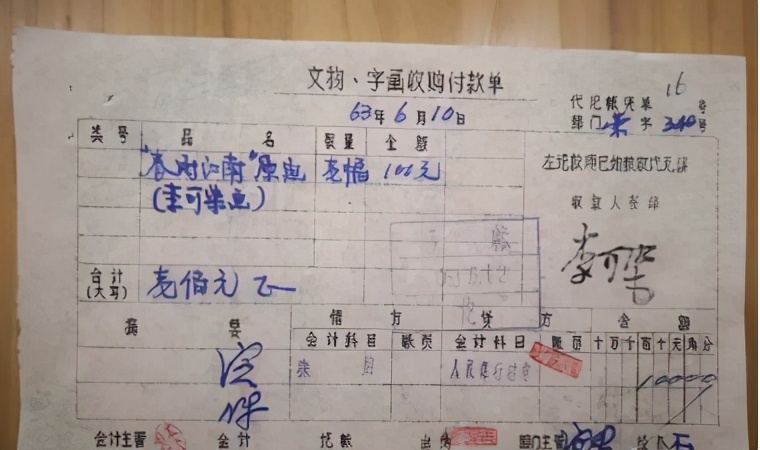 文物、字画收购付款单
63年6月10日
16
代记帐凭单 号
部门 荣 字 340号
类号 品名 数量 金额
"春雨江南"原画 壹幅 100元
(李可染画)
左记款项已如数收讫无误
收款人签章
李可染
合计(大写) 壹佰元正
摘要 借方 贷方 金额
会计科目 帐页 会计科目 帐页 十万千百十元角分
人民银行
10000
会计主管 会计 记帐 出纳 部门主管